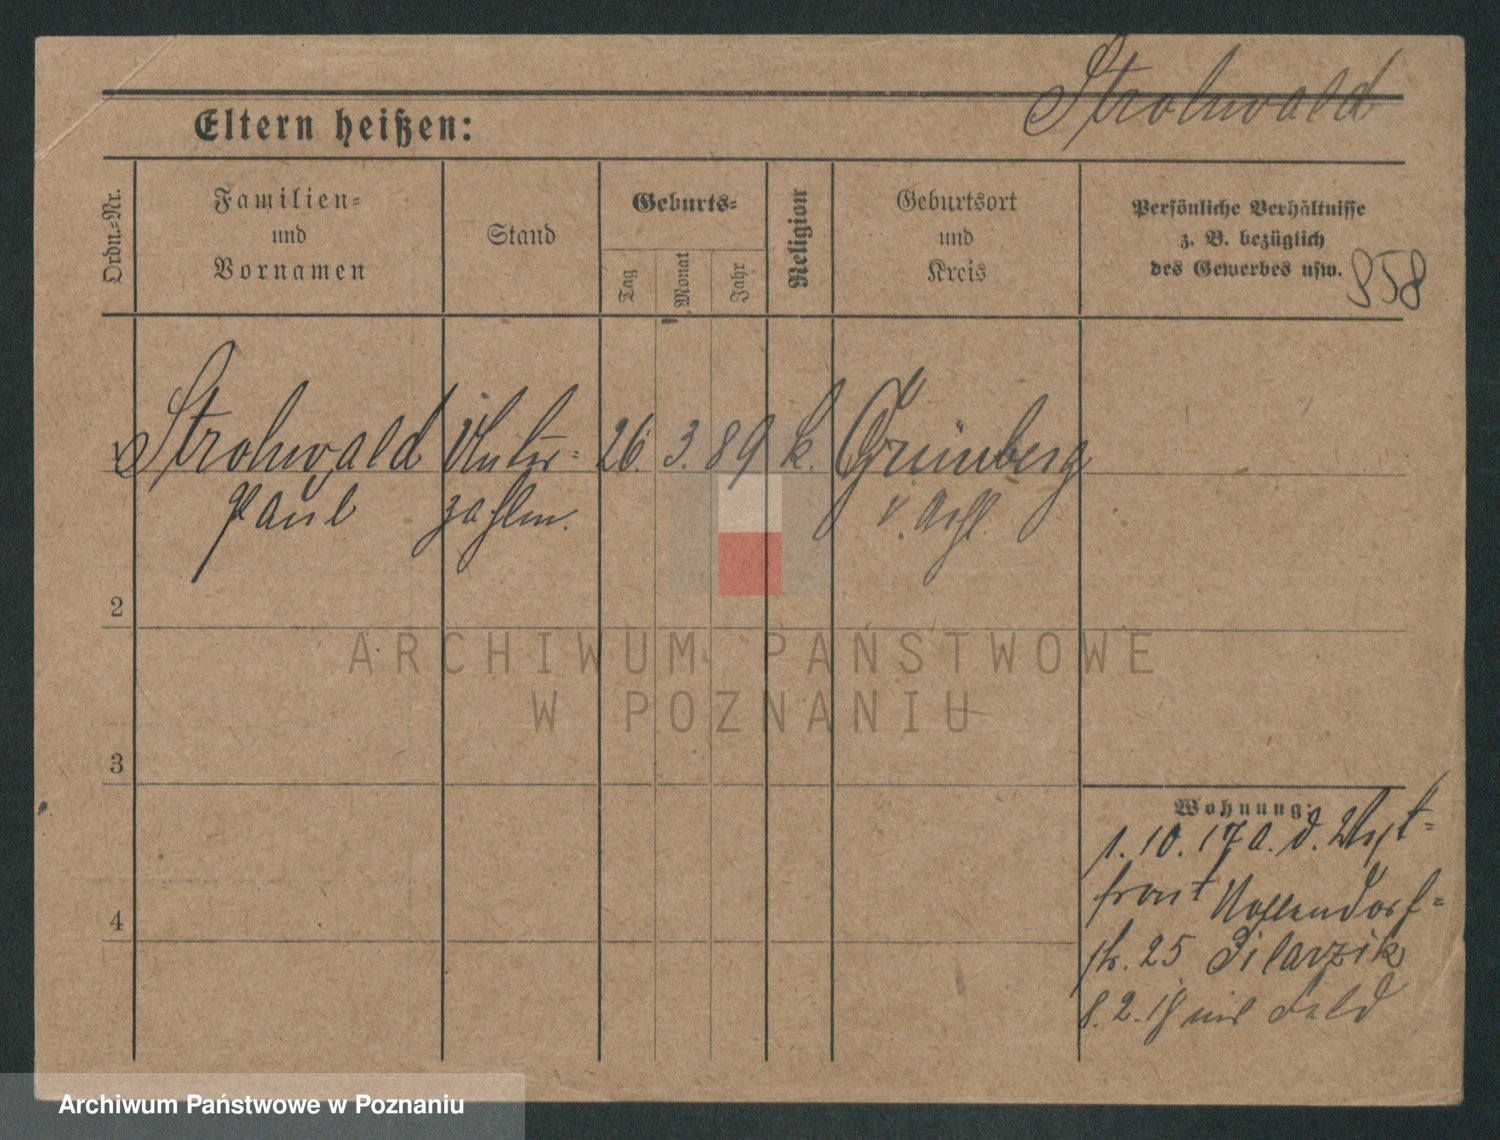 Strohwald
Eltern heißen:
Ordn.-Nr.
Familien-
und
Vornamen
Stand
Geburts-
Tag
Monat
Jahr
Religion
Geburtsort
und
Kreis
Persönliche Verhältnisse
z. B. bezüglich
des Gewerbes usw.
858
Strohwald Unter- 26. 3. 89 k. Grünberg
Paul zahlm. i. Schl.
2
3
4
Wohnung:
1. 10. 17 a. d. West-
front Nollendorf-
str. 25 Pilarzik
8. 2. 18 ins Feld
ARCHIWUM PAŃSTWOWE
W POZNANIU
Archiwum Państwowe w Poznaniu